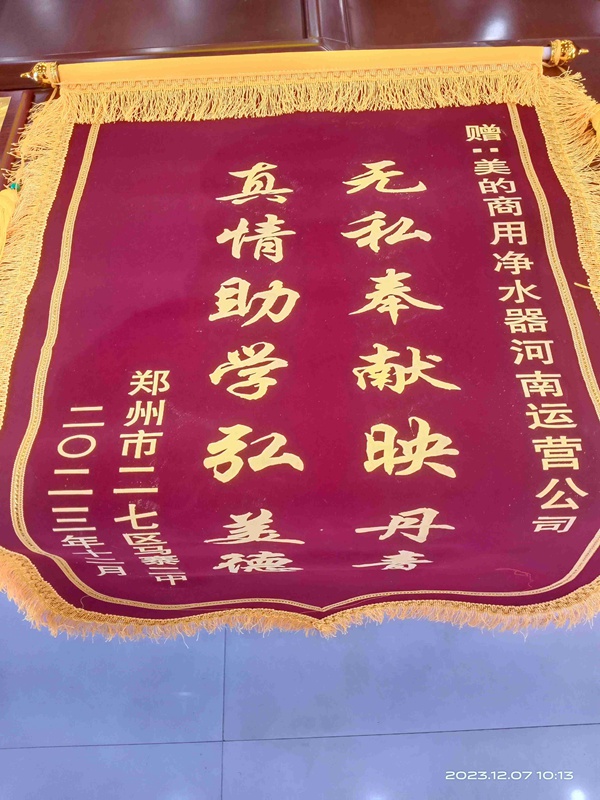 赠:美的商用净水器河南运营公司
无私奉献映丹青
真情助学弘美德
郑州市二七区马寨二中
二〇二三年十二月
2023.12.07 10:13